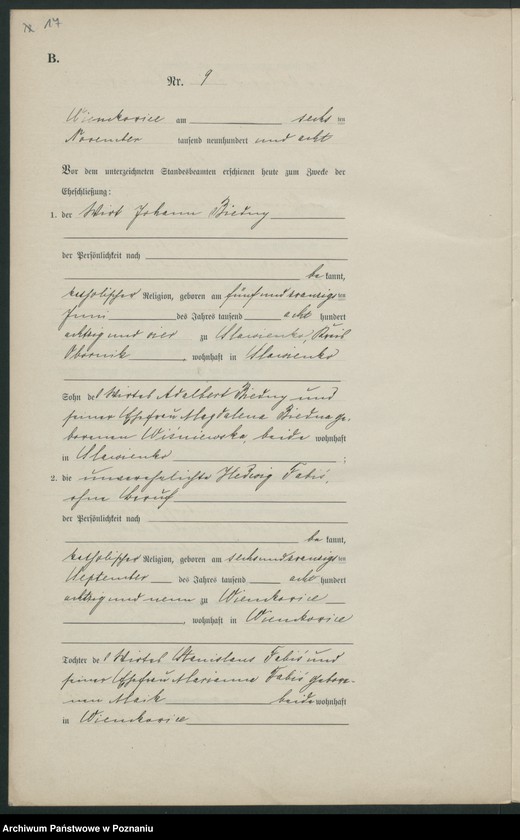 17
B.
Nr. 9
Wienskowice am sechs ten
November tausend neunhundert und acht
Vor dem unterzeichneten Standesbeamten erschienen heute zum Zwecke der
Eheschließung:
1. der Wirt Johann Biedny
der Persönlichkeit nach
be kannt,
katholischer Religion, geboren am fünfundzwanzigs ten
Juni des Jahres tausend acht hundert
achtzig und vier zu Slawienko, Kreis
Obornik, wohnhaft in Slawienko
Sohn des Wirtes Adalbert Biedny und
seiner Ehefrau Magdalena Biedna ge-
borenen Wiśniewska, beide wohnhaft
in Slawienko;
2. die unverehelichte Hedwig Fabiś,
ohne Beruf
der Persönlichkeit nach
be kannt,
katholischer Religion, geboren am sechsundzwanzigs ten
September des Jahres tausend acht hundert
achtzig und neun zu Wienskowice
, wohnhaft in Wienskowice
Tochter des Wirtes Stanislaus Fabiś und
seiner Ehefrau Marianna Fabiś gebore-
nen Maik beide wohnhaft
in Wienskowice
Archiwum Państwowe w Poznaniu